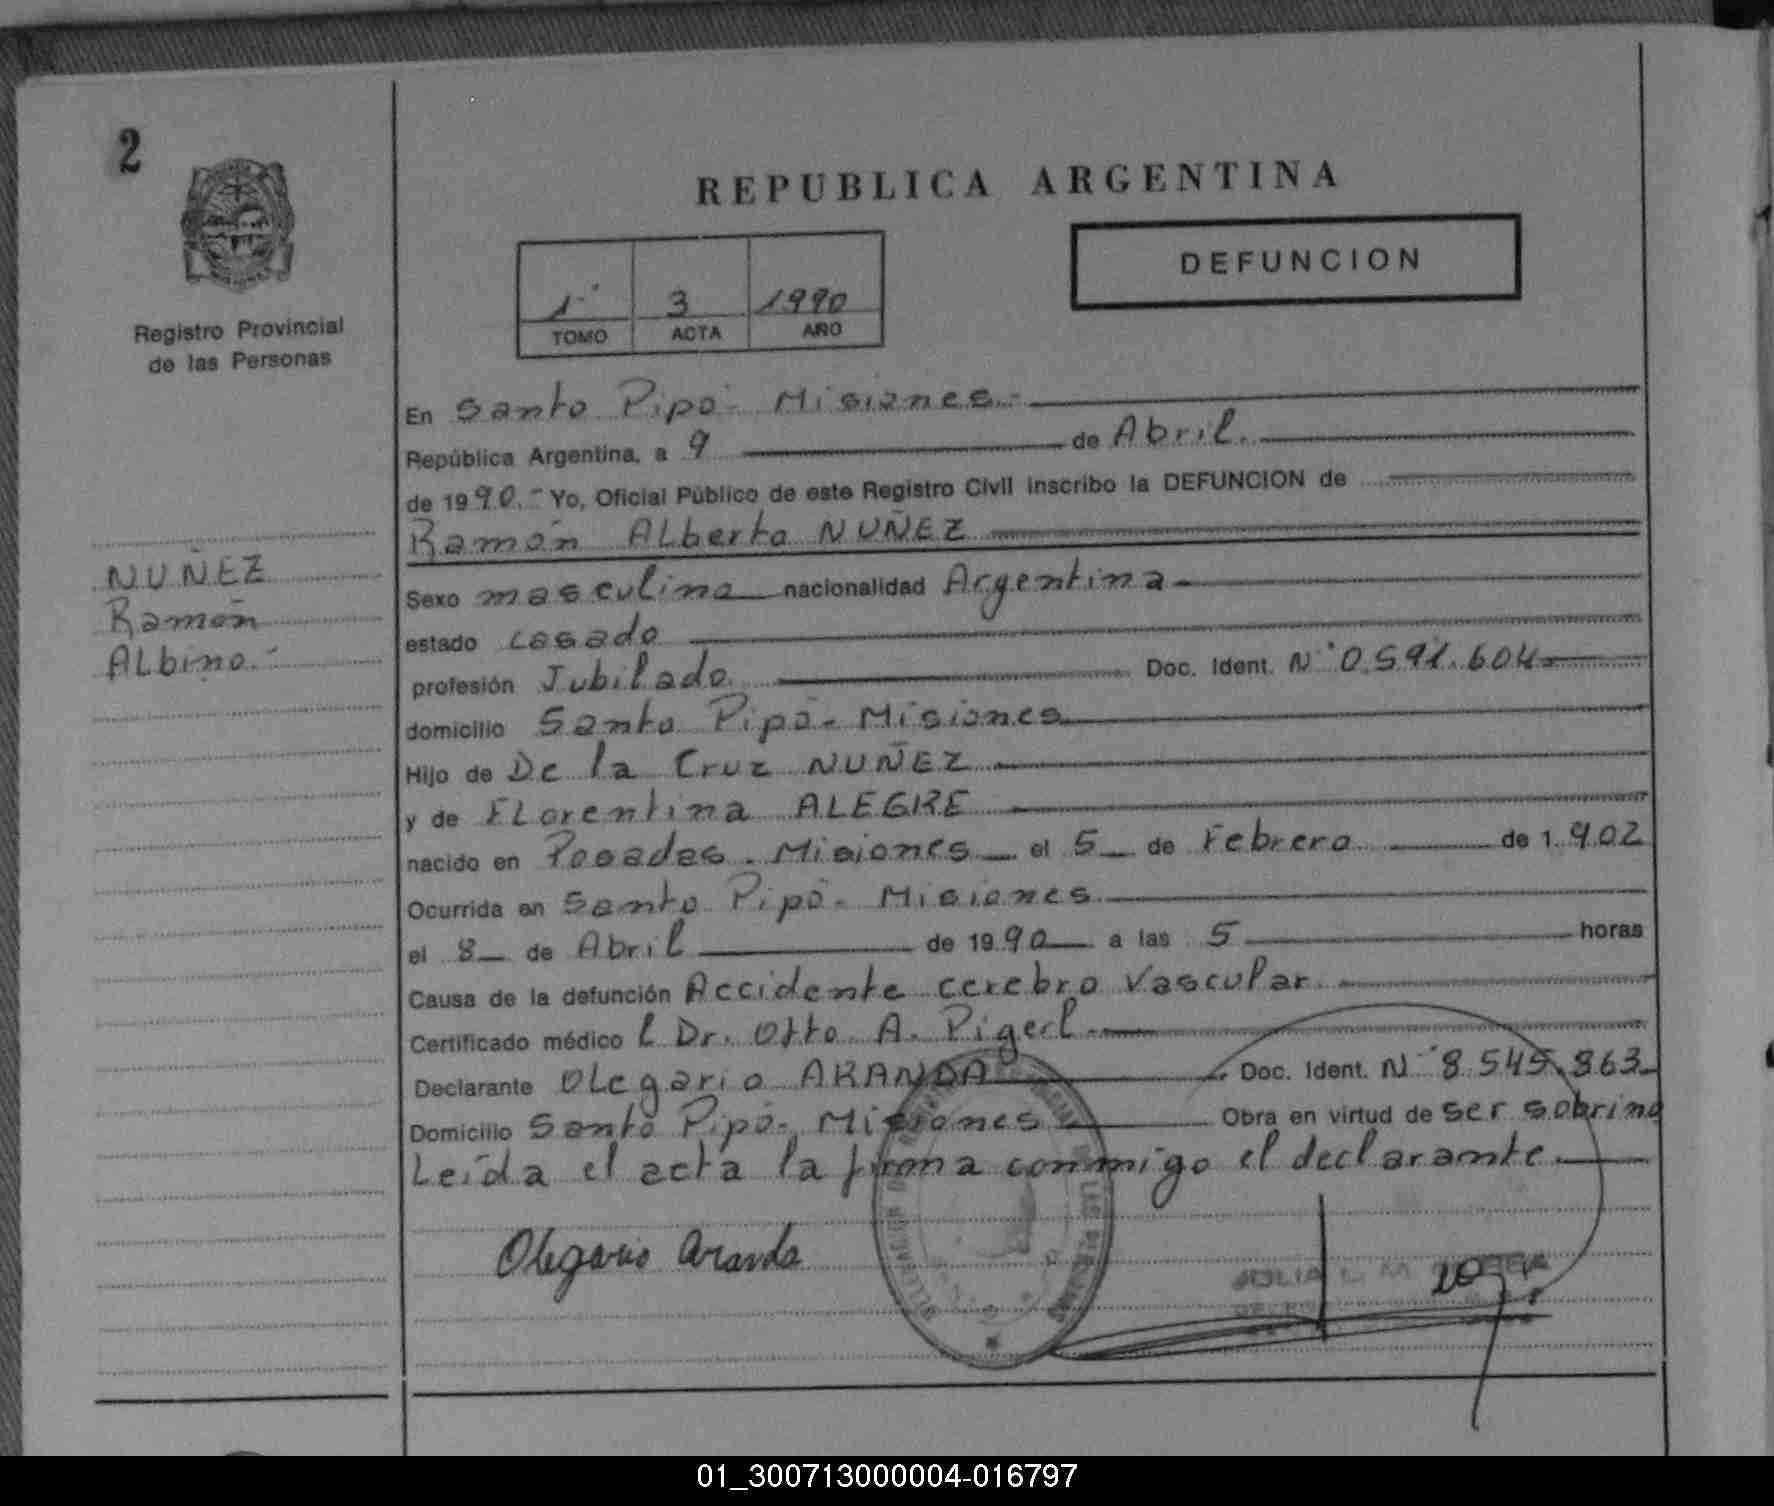 2
REPUBLICA ARGENTINA
DEFUNCION
1º 3 1990
TOMO ACTA AÑO
Registro Provincial
de las Personas
NUÑEZ
Ramón
Albino.-
En Santo Pipó - Misiones.-
República Argentina, a 9 de Abril.
de 1990.- Yo, Oficial Público de este Registro Civil inscribo la DEFUNCION de
Ramón Alberto NUÑEZ
Sexo masculino nacionalidad Argentina
estado casado
profesión Jubilado. Doc. Ident. Nº 0.591.604
domicilio Santo Pipó - Misiones
Hijo de De la Cruz NUÑEZ
y de Florentina ALEGRE
nacido en Posadas. Misiones el 5 de Febrero de 1.902
Ocurrida en Santo Pipó - Misiones
el 8 de Abril de 1990 a las 5 horas
Causa de la defunción Accidente cerebro Vascular.
Certificado médico Dr. Otto A. Pigerl.
Declarante Olegario ARANDA Doc. Ident. Nº 8.545.863
Domicilio Santo Pipó - Misiones Obra en virtud de ser sobrino
Leída el acta la firma conmigo el declarante.
Olegario Aranda
JULIA
01_300713000004-016797